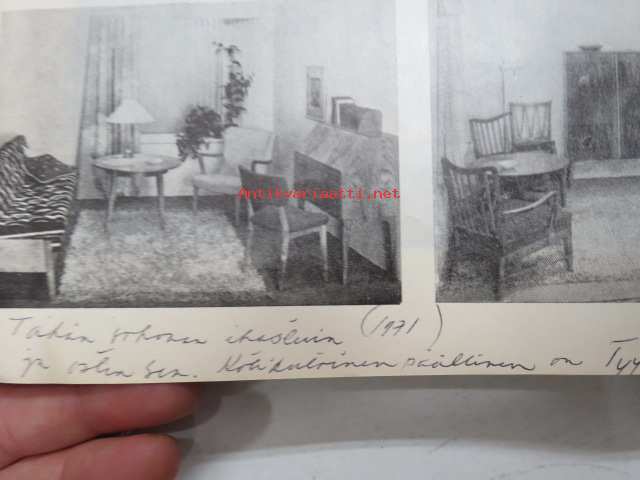 Antikvariaatti.net
Tähän sohvaan ihastuin (1971)
ja ostin sen. Kotikutoinen päällinen on